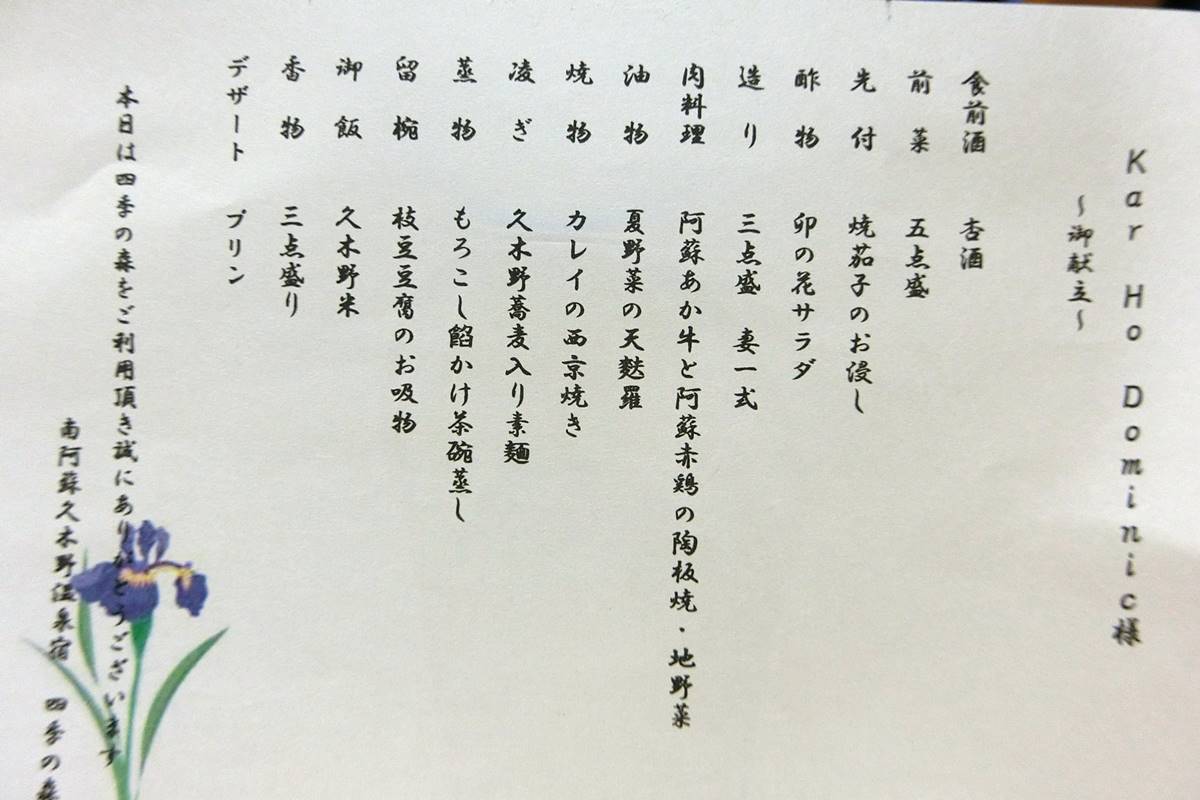 Kar Ho Dominic様
～御献立～
食前酒 杏酒
前菜 五点盛
先付 焼茄子のお浸し
酢物 卯の花サラダ
造り 三点盛 妻一式
肉料理 阿蘇あか牛と阿蘇赤鶏の陶板焼・地野菜
油物 夏野菜の天麩羅
焼物 カレイの西京焼き
凌ぎ 久木野蕎麦入り素麺
蒸物 もろこし餡かけ茶碗蒸し
留椀 枝豆豆腐のお吸物
御飯 久木野米
香物 三点盛り
デザート プリン
本日は四季の森をご利用頂き誠にありがとうございます
南阿蘇久木野温泉宿 四季の森